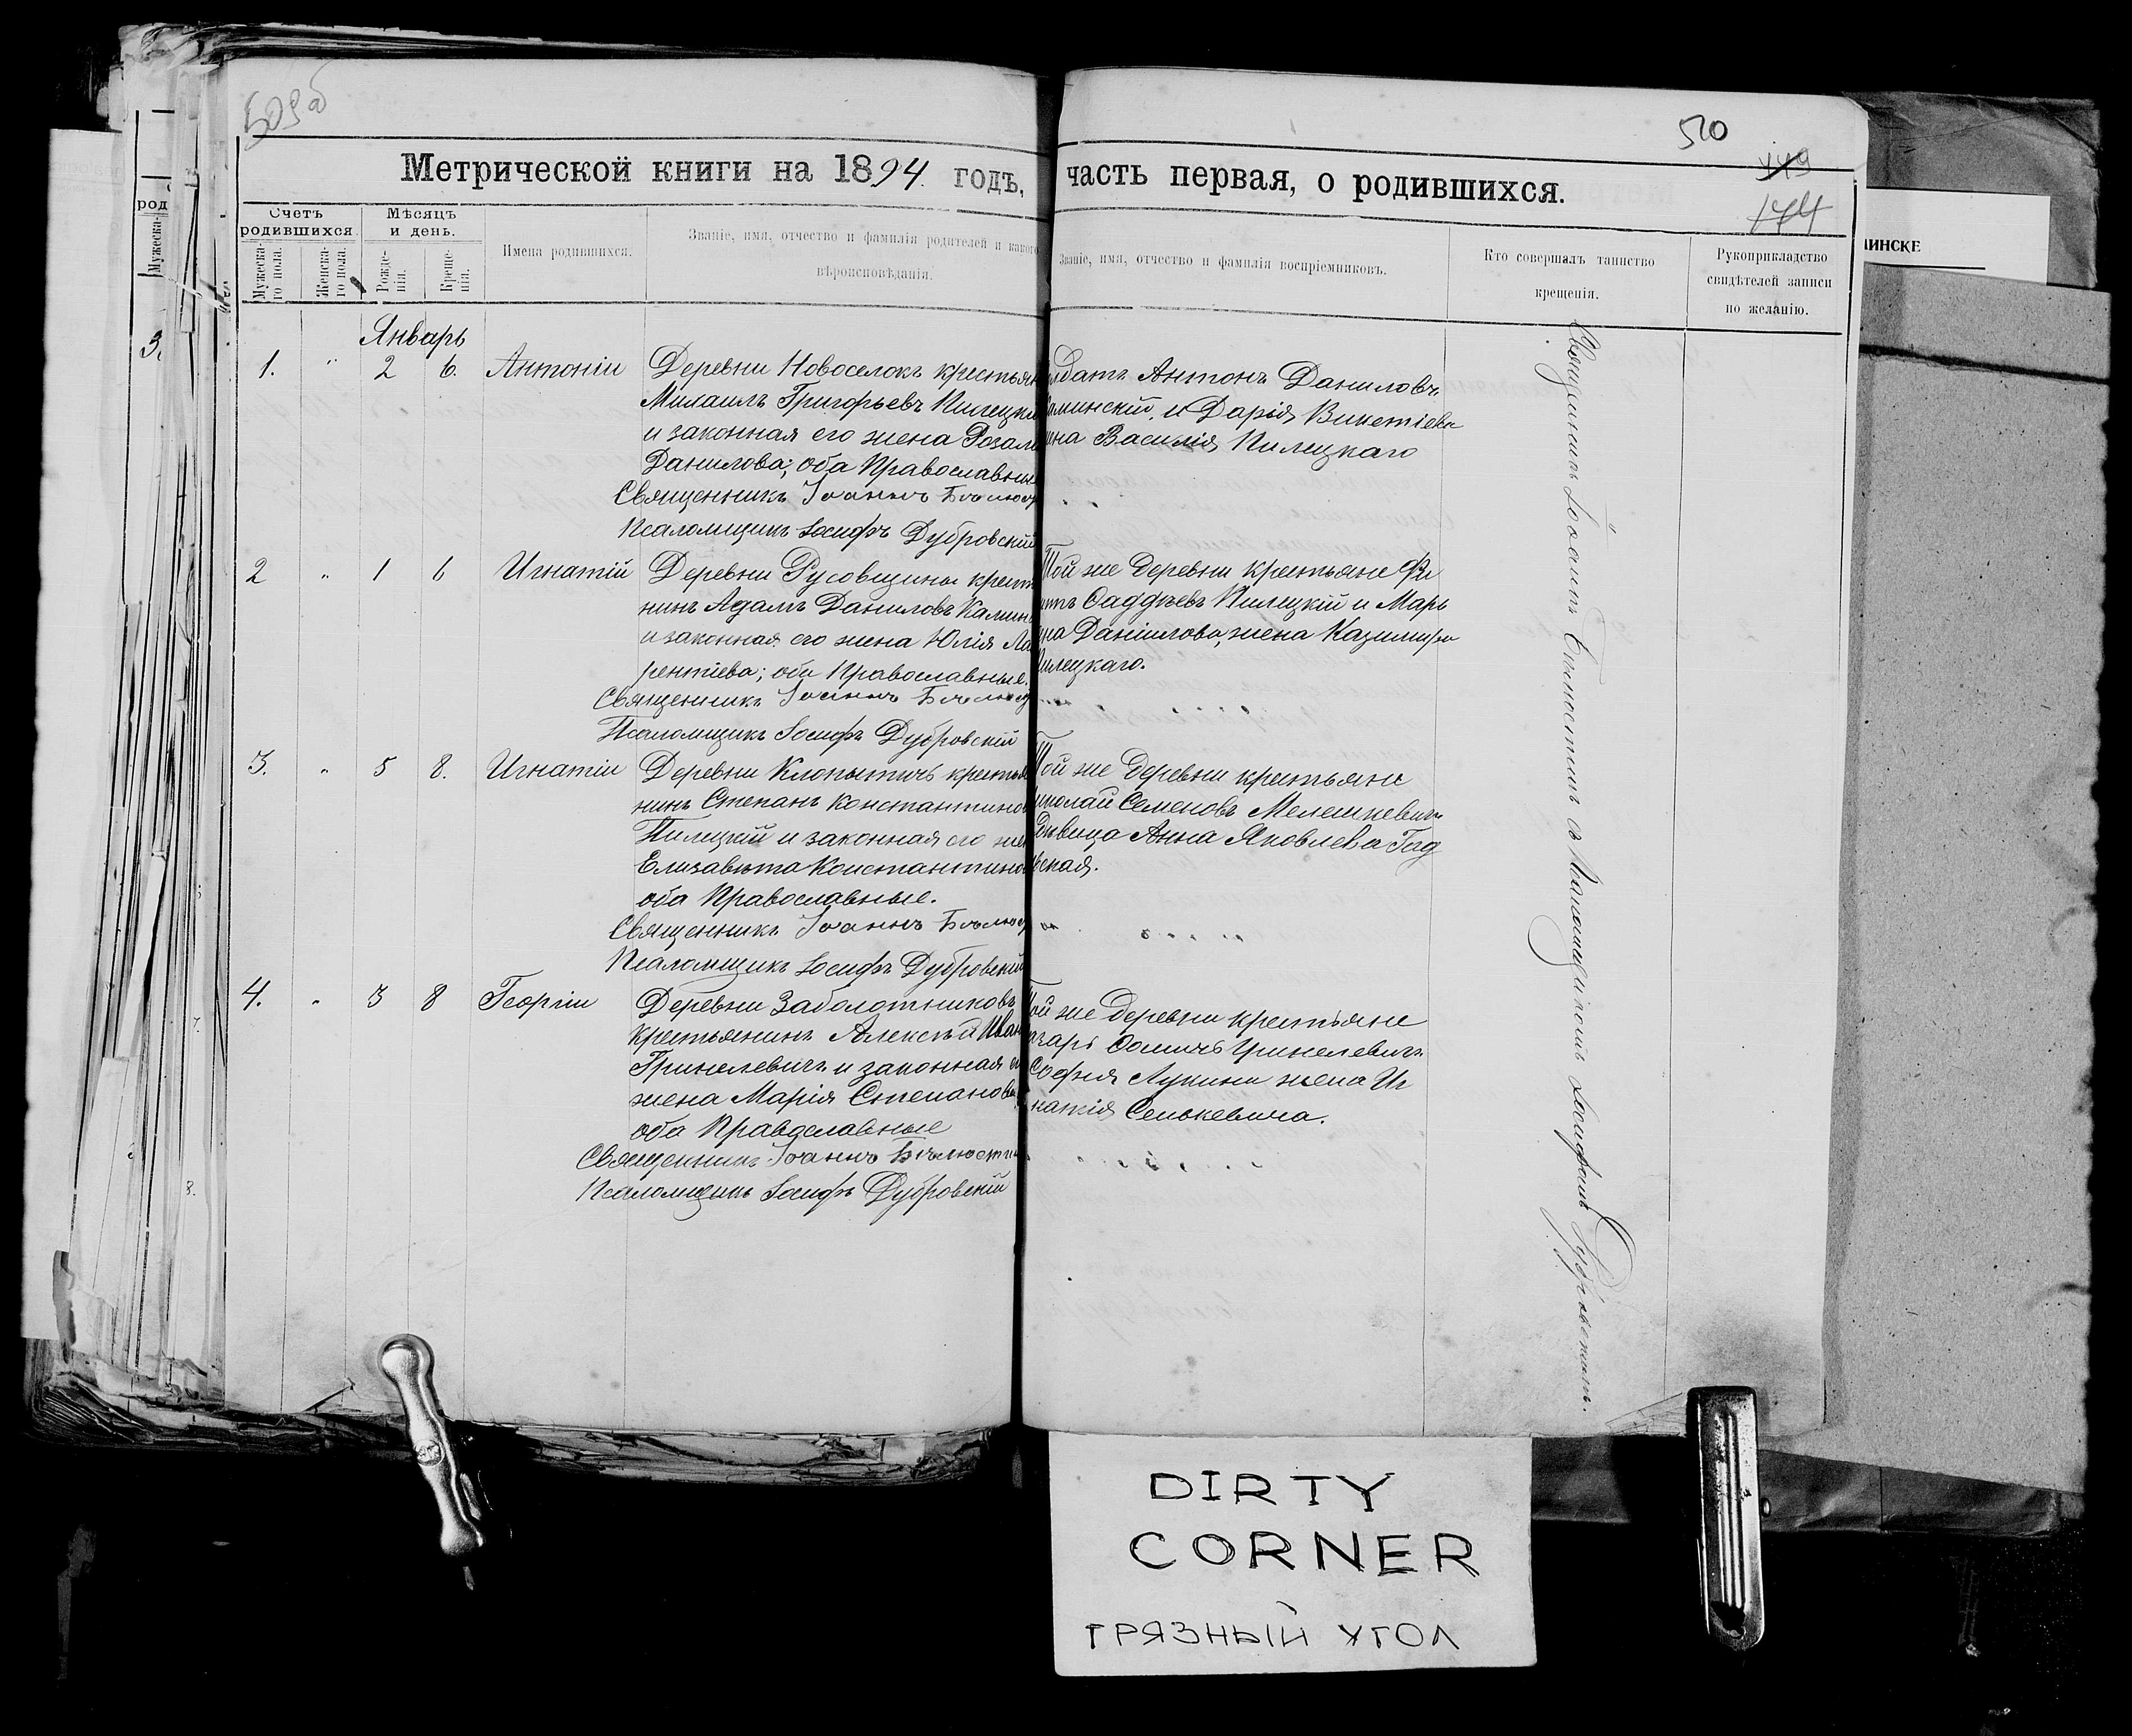 509об
510
149
144
Метрической книги на 1894 годъ, часть первая, о родившихся.
род
Мужеска-
3.
МИНСКЕ
Счетъ родившихся.
Мужеска-
го пола.
Женска-
го пола.
Мѣсяцъ и день.
Рожде-
нія.
Креще-
нія.
Имена родившихся.
Званіе, имя, отчество и фамилія родителей и какого
вѣроисповѣданія.
Званіе, имя, отчество и фамилія воспріемниковъ.
Кто совершалъ таинство
крещенія.
Рукоприкладство
свидѣтелей записи
по желанію.
Январь
1. " 2 6. Антоній
Деревни Новоселокъ крестьян
Михаилъ Григорьевъ Пилецкі
и законная его жена Розалі
Данилова; оба Православные
Священникъ Іоаннъ Бѣлюст
Псаломщикъ Іосифъ Дубровскій
лдатъ Антонъ Даниловъ
аминскій, и Дарія Викетіева
ена Василія Пилецкаго
2 " 1 6 Игнатій
Деревни Русовщины крест
нинъ Адамъ Даниловъ Камин
и законная его жена Юлія Ла
рентіева; оба Православные.
Священникъ Іоаннъ Бѣлюст
Псаломщикъ Іосифъ Дубровскій
Той же деревни крестьяне Фи
иппъ Ѳаддѣевъ Пилецкій и Марь
на Даниилова, жена Казимира
илецкаго.
3. " 5 8. Игнатій
Деревни Клопытичъ крестья
нинъ Степанъ Константинов
Пилецкій и законная его жен
Елизавета Константинов
оба Православные.
Священникъ Іоаннъ Бѣлюст
Псаломщикъ Іосифъ Дубровскій
Той же деревни крестьяне
иколай Семеновъ Мелешкевичъ
дѣвица Анна Яковлева Гад
вская.
4. " 3 8 Георгій
Деревни Заболотниковъ
крестьянинъ Алексѣй Иван
Гринелевичъ и законная ег
жена Марія Степанова
оба Православные
Священникъ Іоаннъ Бѣлюстин
Псаломщикъ Іосифъ Дубровскій
ой же деревни крестьяне
азарь Ѳомичъ Гринелевичъ
Софія Лукина жена Иг
натія Сенькевича.
Священникъ Іоаннъ Бѣлюстинъ съ Псаломщикомъ Іосифомъ Дубровскимъ.
DIRTY
CORNER
ГРЯЗНЫЙ УГОЛ